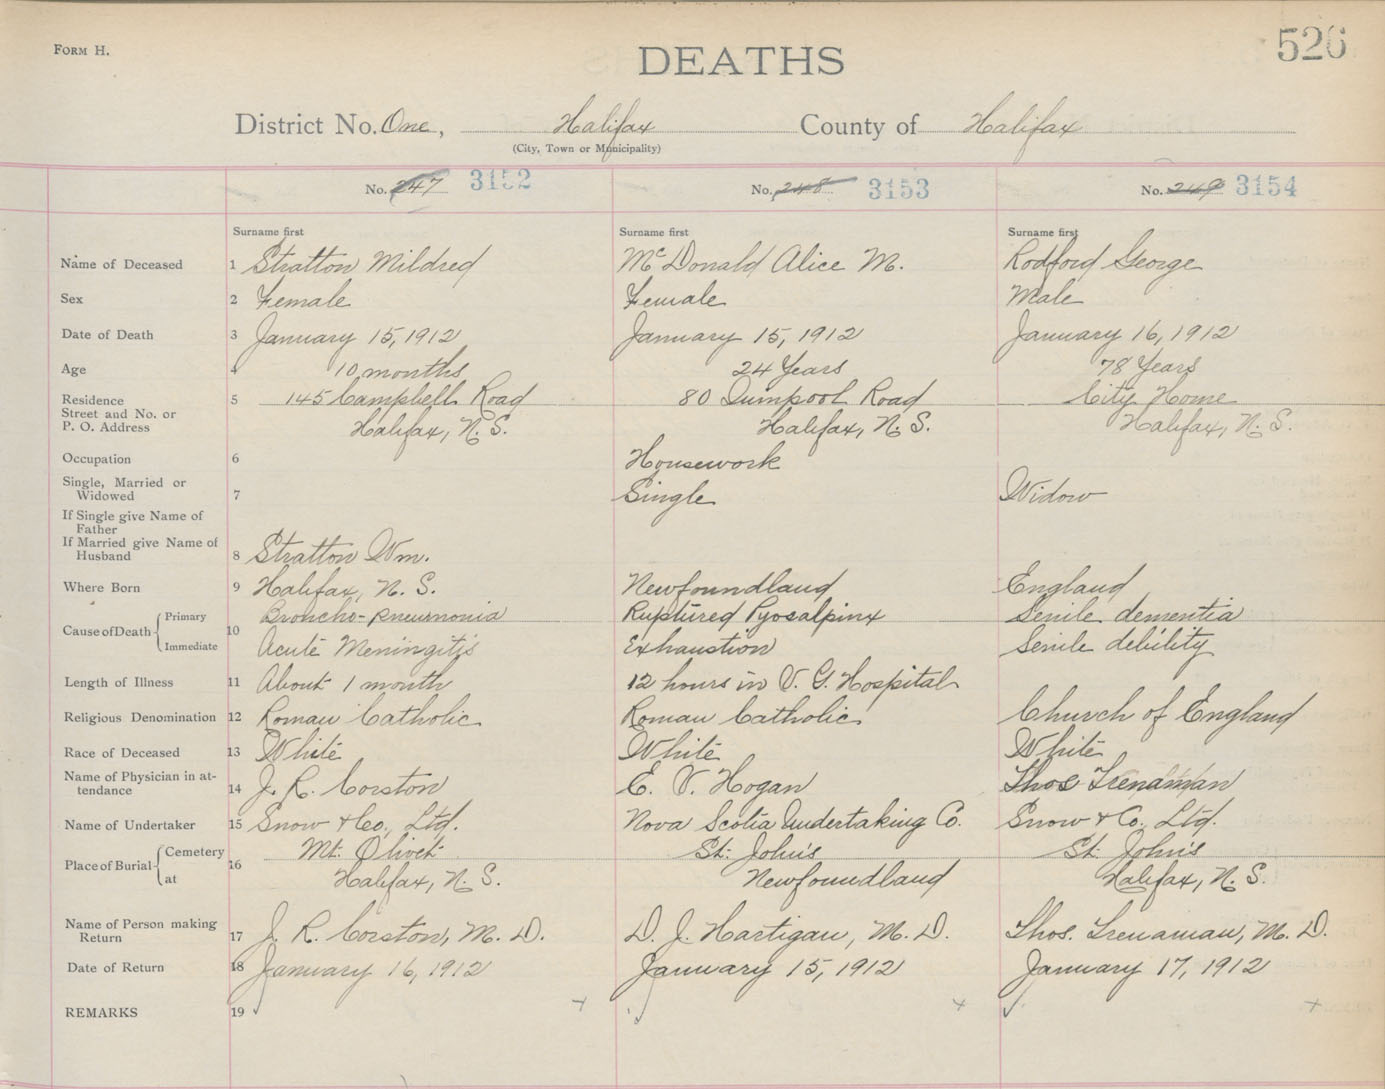 FORM H.
DEATHS
526
District No. One, Halifax County of Halifax
(City, Town or Municipality)
No. 247 3152 No. 248 3153 No. 249 3154
Surname first Surname first Surname first
Name of Deceased 1 Stratton Mildred McDonald Alice M. Rodford George
Sex 2 Female Female Male
Date of Death 3 January 15, 1912 January 15, 1912 January 16, 1912
Age 4 10 months 24 Years 78 Years
Residence 5 145 Campbell Road 80 Road City Home
Street and No. or
P. O. Address Halifax, N. S. Halifax, N. S. Halifax, N. S.
Occupation 6 Housework
Single, Married or
Widowed 7 Single Widow
If Single give Name of
Father
If Married give Name of
Husband 8 Stratton Wm.
Where Born 9 Halifax, N. S. Newfoundland England
Cause of Death Primary 10 Broncho-pneumonia Ruptured Pyosalpinx Senile dementia
Immediate Acute Meningitis Exhaustion Senile debility
Length of Illness 11 About 1 month 12 hours in V. G. Hospital
Religious Denomination 12 Roman Catholic Roman Catholic Church of England
Race of Deceased 13 White White White
Name of Physician in at-
tendance 14 J. R. Corston E. V. Hogan Thos Trenaman
Name of Undertaker 15 Snow & Co., Ltd. Nova Scotia Undertaking Co. Snow & Co. Ltd.
Place of Burial Cemetery 16 Mt. Olivet St. John's St. John's
at Halifax, N. S. Newfoundland Halifax, N. S.
Name of Person making
Return 17 J. R. Corston, M. D. D. J. Hartigan, M. D. Thos. Trenaman, M. D.
Date of Return 18 January 16, 1912 January 15, 1912 January 17, 1912
REMARKS 19